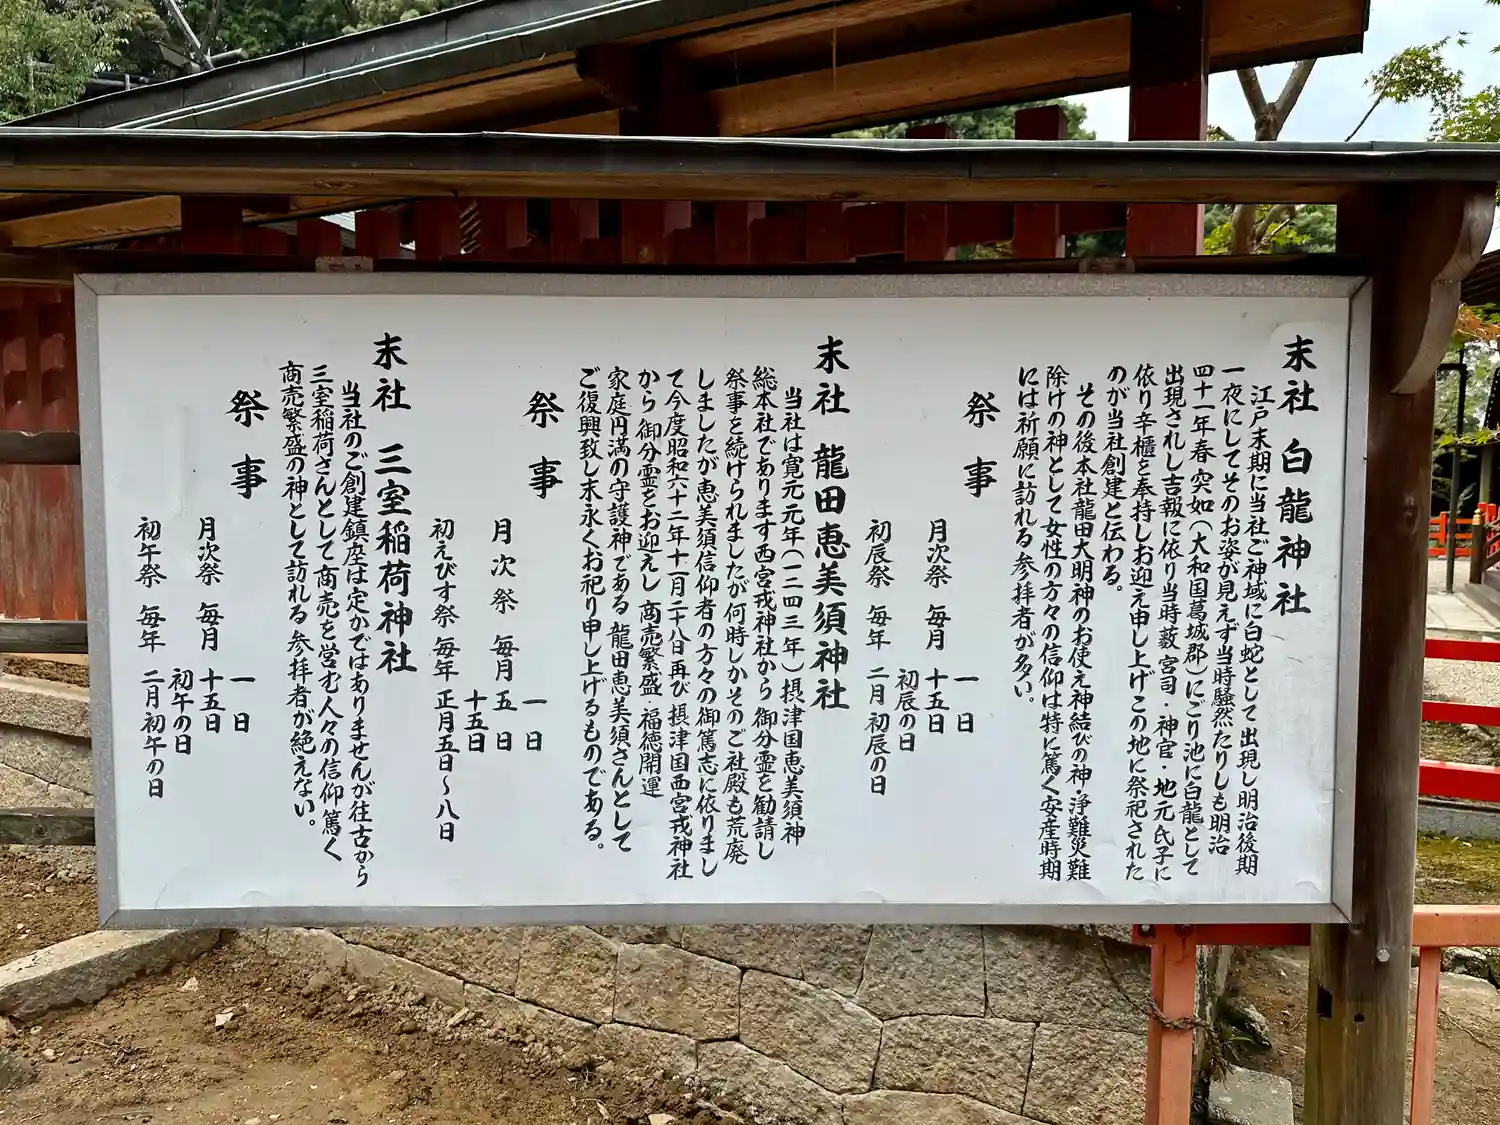 末社 白龍神社
江戸末期に当社ご神域に白蛇として出現し明治後期
一夜にしてそのお姿が見えず当時騒然たりしも明治
四十一年春突如(大和国葛城郡)にごり池に白龍として
出現されし吉報に依り当時藪宮司・神官・地元氏子に
依り辛櫃を奉持しお迎え申し上げこの地に祭祀された
のが当社創建と伝わる。
その後本社龍田大明神のお使え神結びの神・浄難災難
除けの神として女性の方々の信仰は特に篤く安産時期
には祈願に訪れる参拝者が多い。
祭事
月次祭 毎月 一日
十五日
初辰の日
初辰祭 毎年 二月 初辰の日
末社 龍田恵美須神社
当社は寛元元年(一二四三年)摂津国恵美須神
総本社であります西宮戎神社から御分霊を勧請し
祭事を続けられましたが何時しかそのご社殿も荒廃
しましたが恵美須信仰者の方々の御篤志に依りまし
て今度昭和六十二年十一月二十八日再び摂津国西宮戎神社
から御分霊をお迎えし商売繁盛・福徳開運
家庭円満の守護神である龍田恵美須さんとして
ご復興致し末永くお祀り申し上げるものである。
祭事
月次祭 毎月 一日
五日
十五日
初えびす祭 毎年 正月五日〜八日
末社 三室稲荷神社
当社のご創建鎮座は定かではありませんが往古から
三室稲荷さんとして商売を営む人々の信仰篤く
商売繁盛の神として訪れる参拝者が絶えない。
祭事
月次祭 毎月 一日
十五日
初午の日
初午祭 毎年 二月初午の日